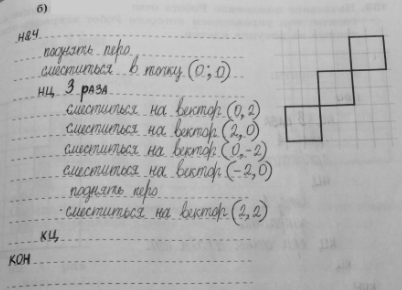 б)
нач
поднять перо
сместиться в точку (0; 0)
нц 3 раза
сместиться на вектор (0, 2)
сместиться на вектор (2, 0)
сместиться на вектор (0, -2)
сместиться на вектор (-2, 0)
поднять перо
сместиться на вектор (2, 2)
кц
кон